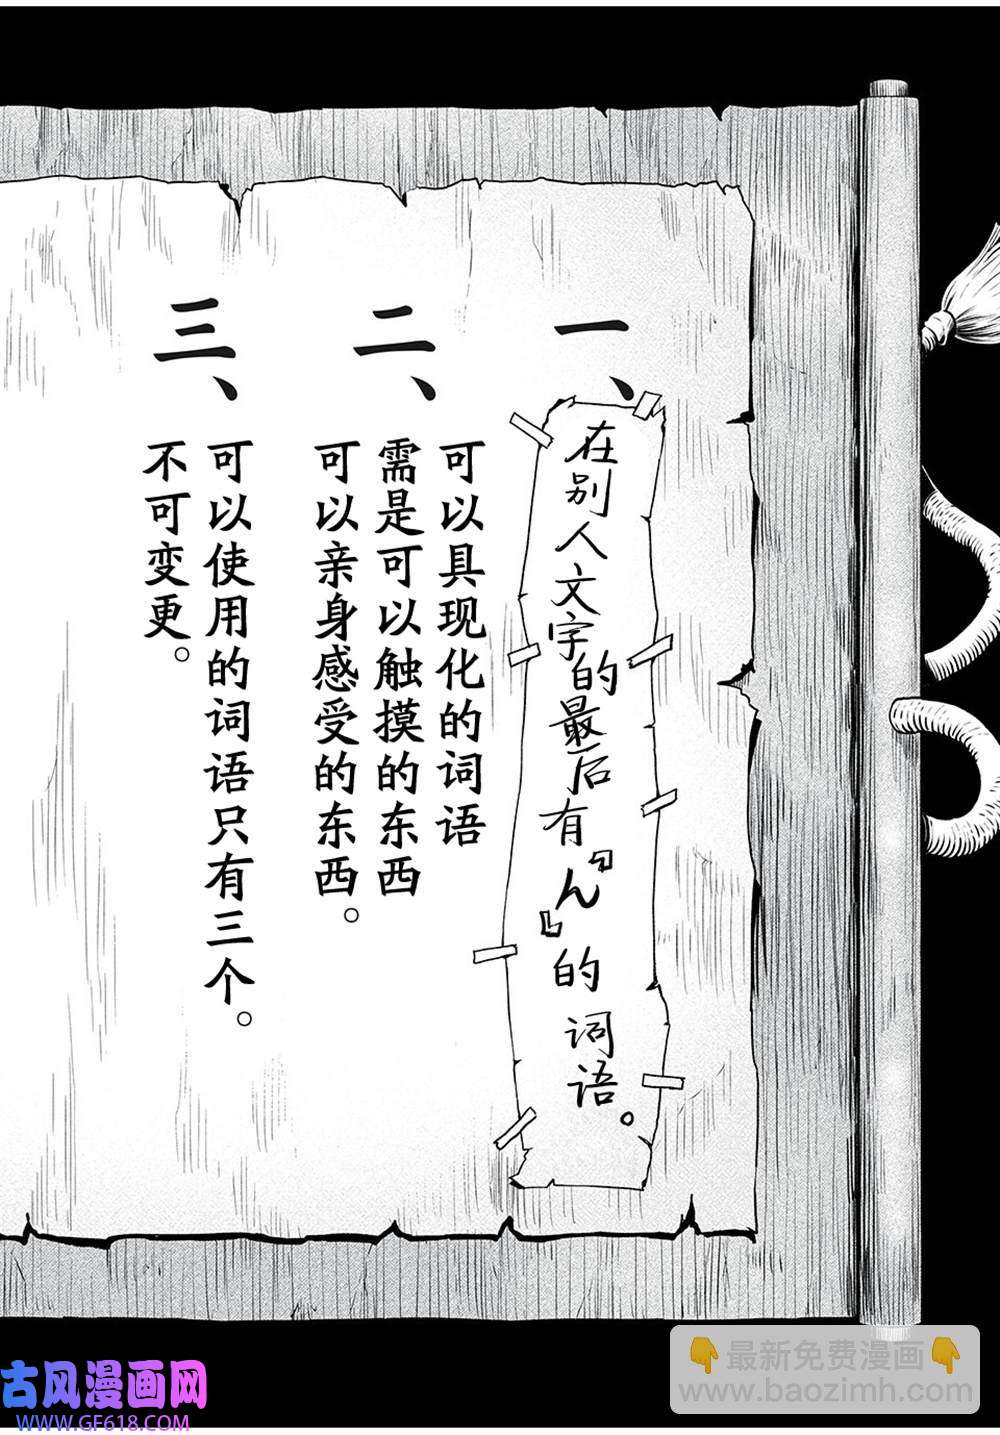 一、
在别人文字的最后有『ん』的词语。
二、
可以具现化的词语
需是可以触摸的东西
可以亲身感受的东西。
三、
可以使用的词语只有三个。
不可变更。
古风漫画网
WWW.GF618.COM
👇最新免费漫画👇
www.baozimh.com